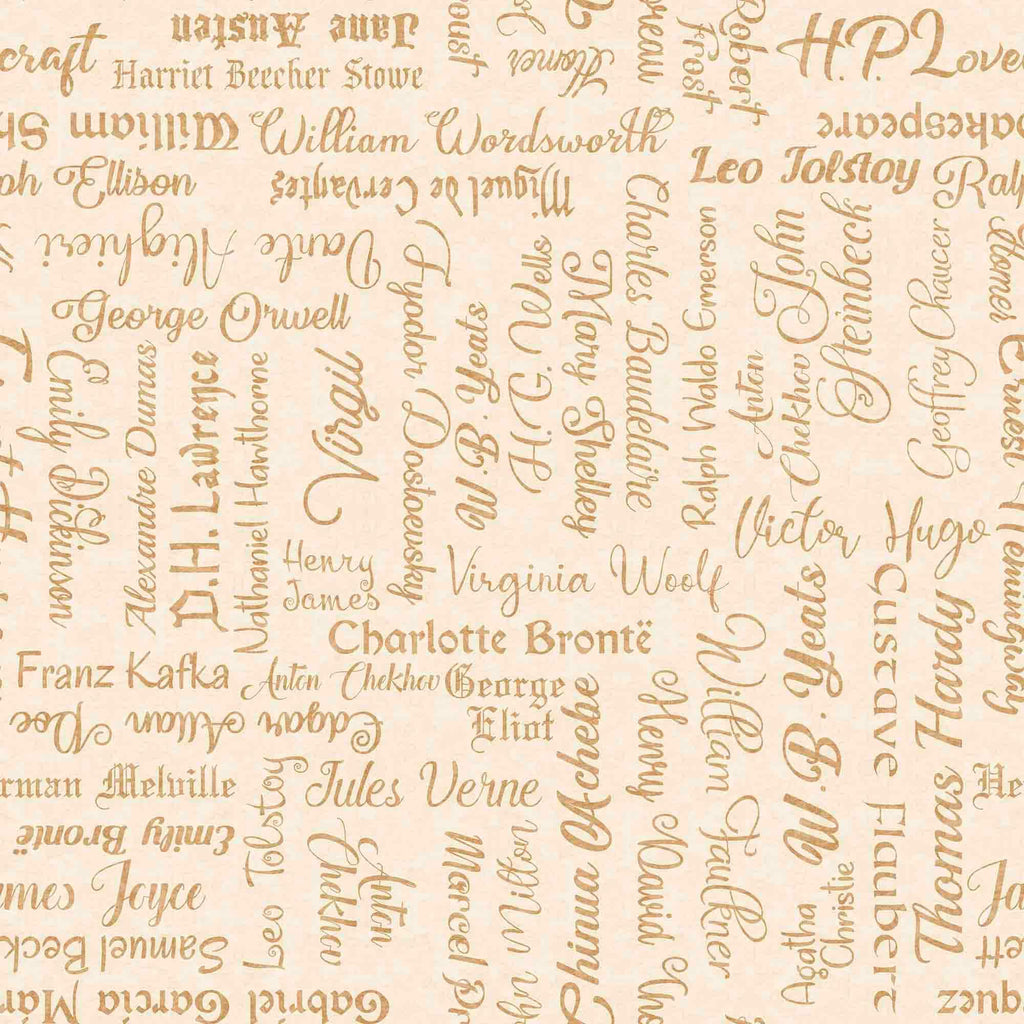 craft
Jane Austen
Harriet Beecher Stowe
oust
Homer
oreau
Robert
Frost
H.P. Love
William Sh
William Wordsworth
akespeare
ph Ellison
Miguel de Cervantes
Leo Tolstoy
Ral
Dante Alighieri
George Orwell
Fyodor Dostoevsky
W. B. Yeats
H. G. Wells
Mary Shelley
Charles Baudelaire
Ralph Waldo Emerson
Anton
Chekhov
John
Steinbeck
Geoffrey Chaucer
Homer
Ernest Hemingway
Emily Dickinson
Alexandre Dumas
D.H. Lawrence
Nathaniel Hawthorne
Virgil
Henry
James
Virginia Woolf
Victor Hugo
Charlotte Brontë
Franz Kafka
Anton Chekhov
George
Eliot
Edgar Allan Poe
rman Melville
He
Leo Tolstoy
Jules Verne
Chinua Achebe
Henry David Tho
William Faulkner
W. B. Yeats
Gustave Flaubert
Thomas Hardy
Emily Brontë
ames Joyce
Ja
Anton
Chekhov
Marcel Pr
ohn Milton
Agatha
Christie
Samuel Beck
ett
Gabriel Garcia Mar
quez